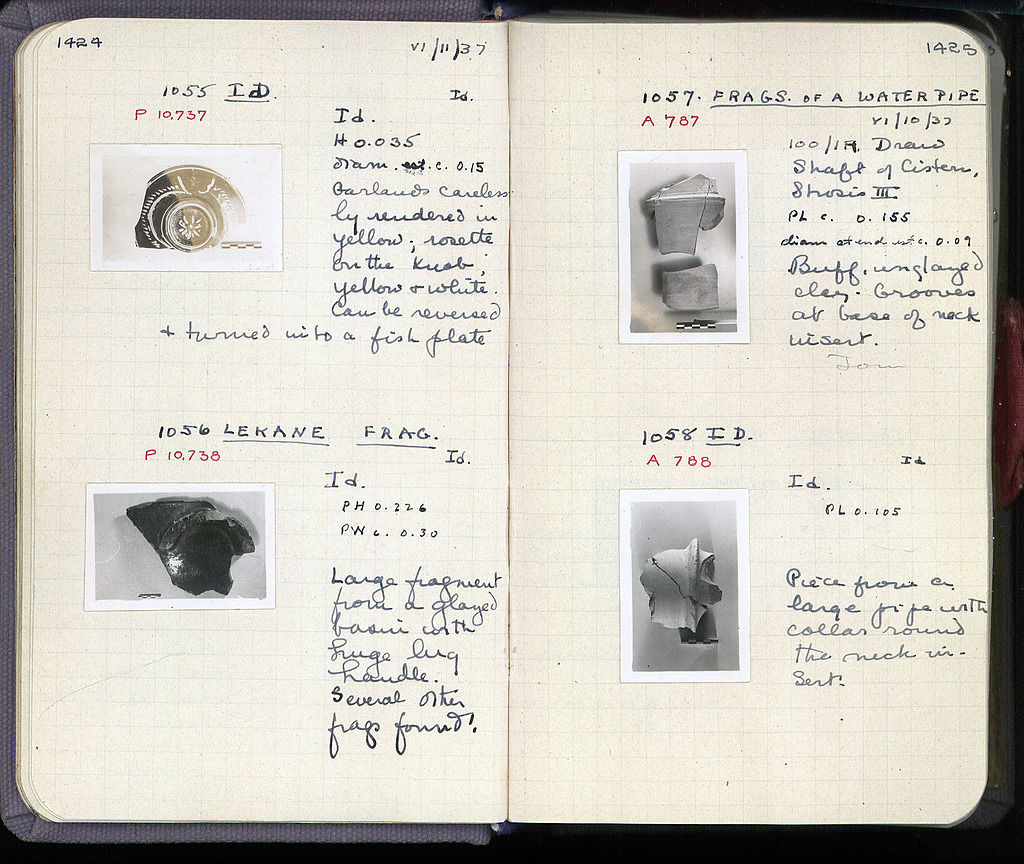 1424
VI/11/37
1055 ID.
Id.
P 10,737
Id.
H 0.035
Diam. est. c. 0.15
Garlands careless
ly rendered in
yellow; rosette
on the knob;
yellow & white.
Can be reversed
& turned into a fish plate
1056 LEKANE FRAG.
P 10,738
Id.
Id.
PH 0.226
PW c. 0.30
Large fragment
from a glazed
basin with
huge lug
handle.
Several other
frags found!
1425
1057. FRAGS. OF A WATER PIPE
A 787
VI/10/37
Draw
Shaft of Cistern,
Strosis III
PL c. 0.155
diam at end est c. 0.09
Buff, unglazed
clay. Grooves
at base of neck
insert.
1058 ID.
A 788
Id
Id.
PL 0.105
Piece from a
large pipe with
collar round
the neck in-
sert.